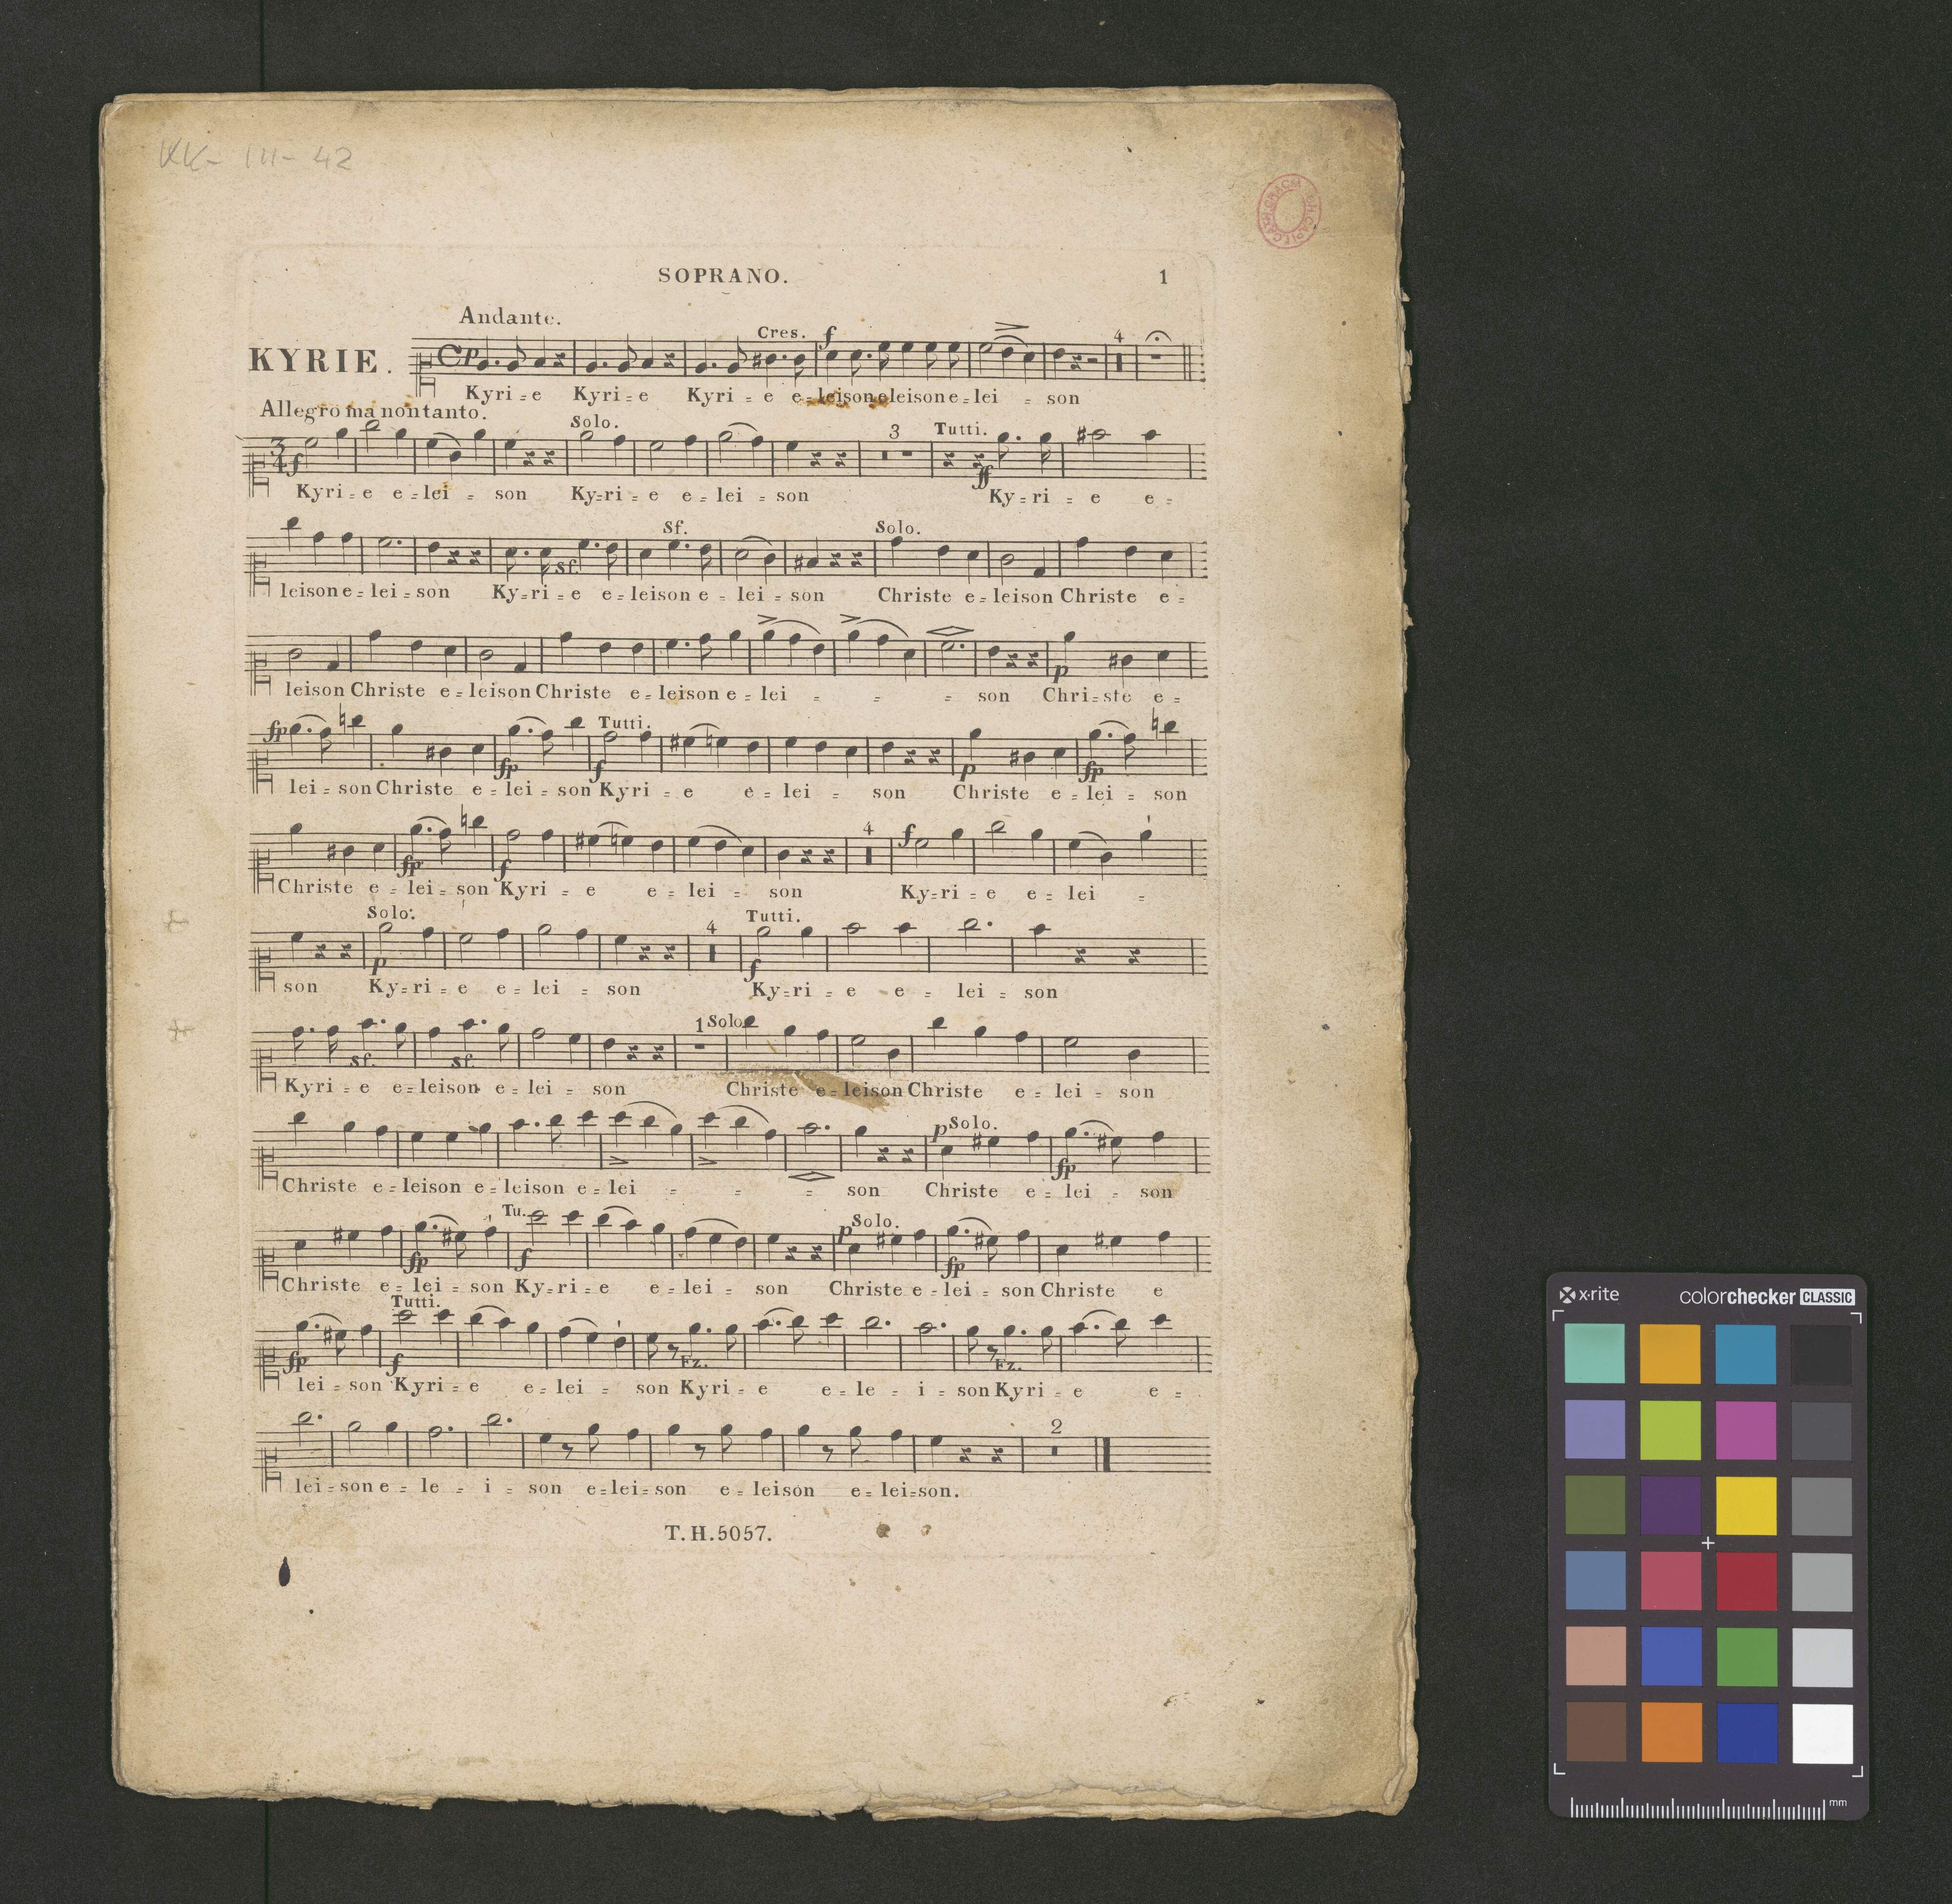 KK- III- 42
SOPRANO. 1
Andante.
Cres. f
4
KYRIE. C p
Kyri = e Kyri = e Kyri = e e = leison eleison e = lei = son
Allegro ma non tanto.
Solo. 3 Tutti.
3/4 f ff
Kyri = e e = lei = son Ky = ri = e e = lei = son Ky = ri = e e =
Sf. Solo.
Sf.
leison e = lei = son Ky = ri = e e = leison e = lei = son Christe e = leison Christe e =
p
leison Christe e = leison Christe e = leison e = lei = = = son Chri = ste e =
fp Tutti.
fp f p fp
lei = son Christe e = lei = son Kyri = e e = lei = son Christe e = lei = son
4 f
fp f
Christe e = lei = son Kyri = e e = lei = son Ky = ri = e e = lei =
Solo. 4 Tutti.
p f
son Ky = ri = e e = lei = son Ky = ri = e e = lei = son
1 Solo
Sf. Sf.
Kyri = e e = leison e = lei = son Christe e = leison Christe e = lei = son
p Solo.
fp
Christe e = leison e = leison e = lei = = = son Christe e = lei = son
Tu. p Solo.
fp f fp
Christe e = lei = son Ky = ri = e e = lei = son Christe e = lei = son Christe e
Tutti.
fp f Fz. Fz.
lei = son Kyri = e e = lei = son Kyri = e e = le = i = son Kyri = e e =
2
lei = son e = le = i = son e = lei = son e = leison e = lei = son.
T.H.5057.
x·rite colorchecker CLASSIC
mm